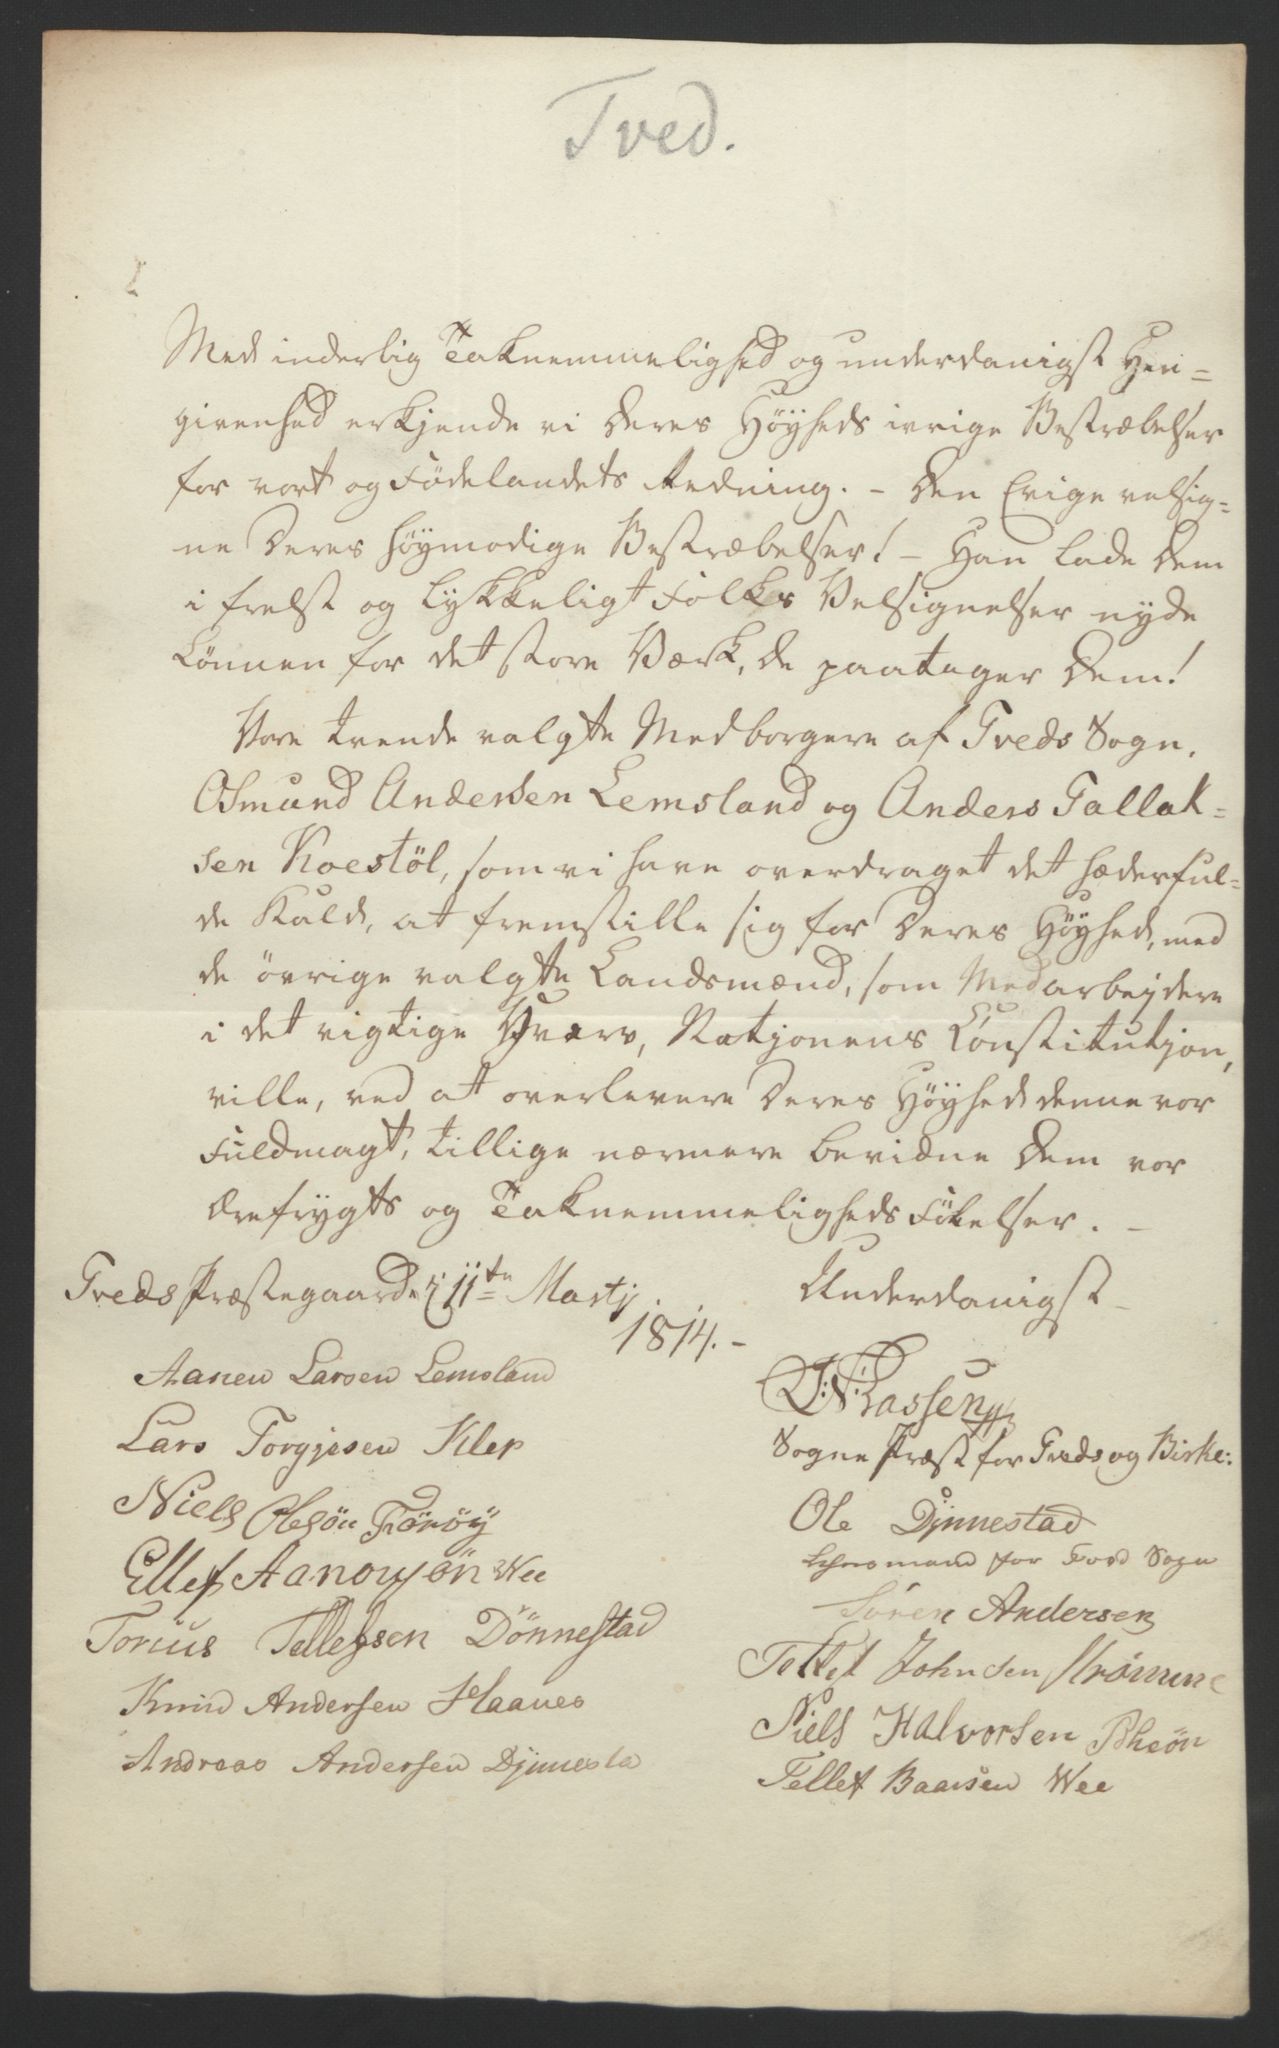 Tved.
Med inderlig Taknemmelighed og underdanigst Hen=
givenhed erkjende vi Deres Høyheds ivrige Bestræbelser
for vort og Fødelandets Redning. - Den Evige velsig-
ne Deres høymodige Bestræbelser! - Han lade Dem
i frelst og lykkeligt Folks Velsignelser nyde
Lønnen for det store Værk, De paatager Dem!
Vore tvende valgte Medborgere af Tveds Sogn,
Osmund Andersen Lemsland og Anders Tallak=
sen Koestøl, som vi have overdraget det hæderful=
de Kald, at fremstille sig for Deres Høyhed, med
de øvrige valgte Landsmænd, som Medarbeydere
i det vigtige Hverv, Natjonens Constitutjon,
ville, ved at overlevere Deres Høyhed denne vor
Fuldmagt, tillige nærmere bevidne Dem vor
Ærefrygts og Taknemmeligheds Følelser. -
Tveds Præstegaard 11te Martj.
1814. -
Underdanigst
Aanen Larsen Lemsland
Lars Torgjesen Klep
Niels Olesøn Torøy
Ellef Aanonsøn Wee
Torius Tellefsen Dønnestad
Knud Andersen Haanes
Andreas Andersen Djnnesta
Sogne Præst for Tveds og Birke:
Ole Djnnestad
Lehnsmand for Tved Sogn
Søren Andersen
Tellef Johnsen Strømme
Niels Halvorsen
Tellef Baarsen Wee